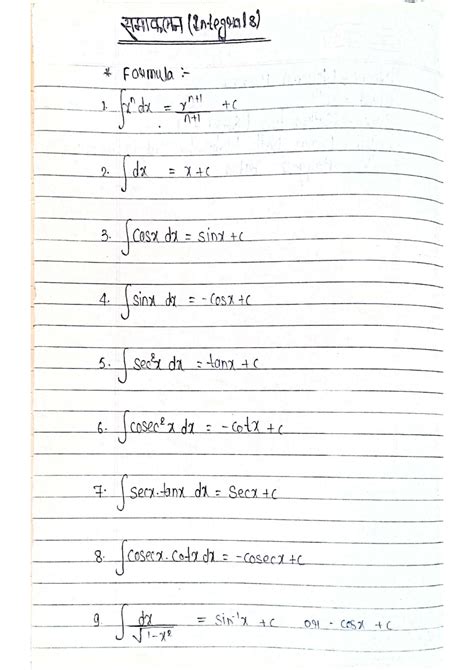 समाकलन (Integrals)
* Formula :-
1. ∫xⁿ dx = xⁿ⁺¹/n+1 + c
2. ∫dx = x + c
3. ∫cosx dx = sinx + c
4. ∫sinx dx = -cosx + c
5. ∫sec²x dx = tanx + c
6. ∫cosec²x dx = -cotx + c
7. ∫secx.tanx dx = secx + c
8. ∫cosecx.cotx dx = -cosecx + c
9. ∫dx/√1-x² = sin⁻¹x + c or - cosx + c